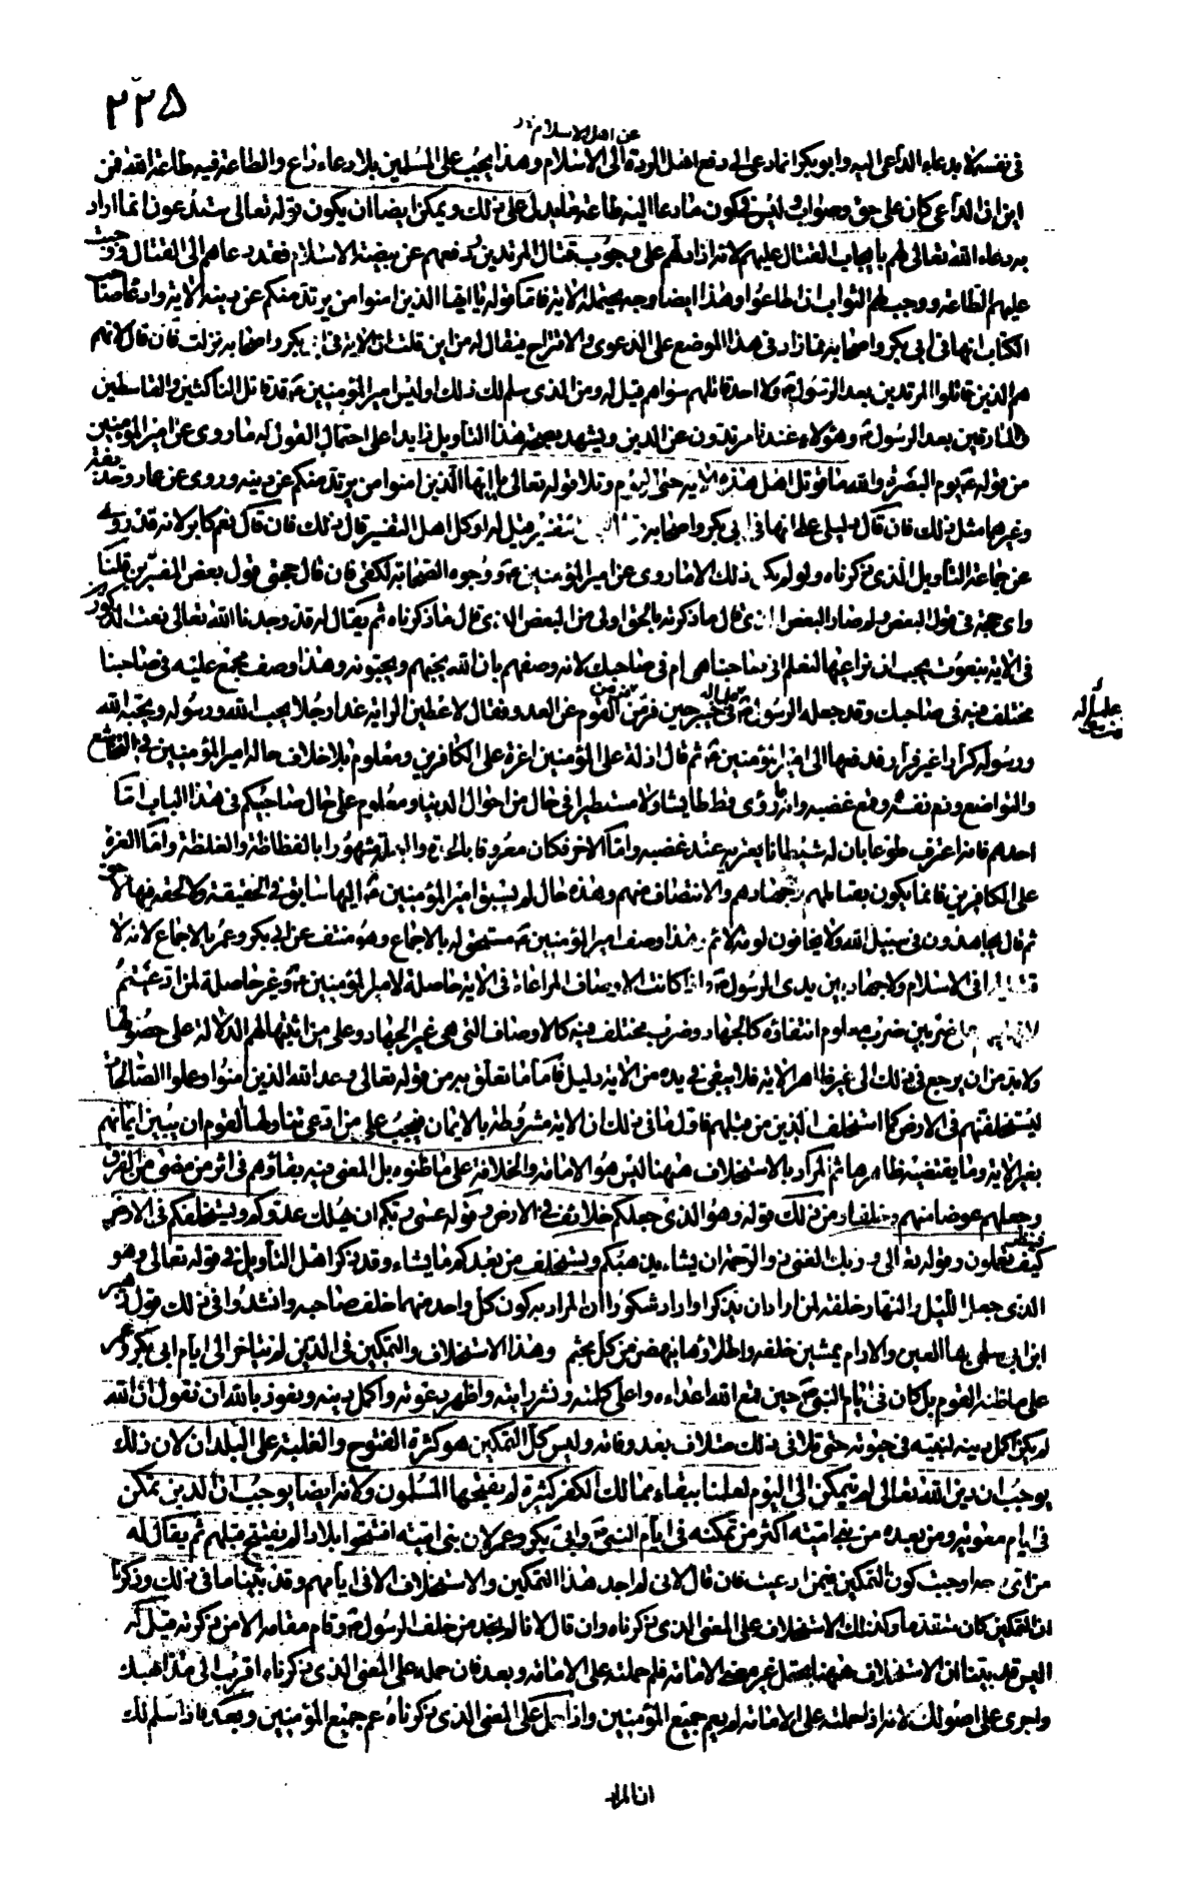 ٢٢٥
عن اهل الاسلام
في نفسه لا بدعاء الداعي اليه وابو بكر انما دعى الى دفع اهل الردة الى الاسلام وهذا يجب على المسلمين بلا دعاء داع والطاعة فيه طاعة الله فمن
اين ان الداعي كان على حق وصواب وليس في كون ما دعا اليه طاعة ما يدل على ذلك ويمكن ايضا ان يكون قوله تعالى ستدعون انما اراد
به دعاء الله تعالى لهم بايجاب القتال عليهم لانه اذا دلهم على وجوب قتال المرتدين ودفعهم عن بيضة الاسلام فقد دعاهم الى القتال ووجبت
عليهم الطاعة ووجب لهم الثواب ان طاعوا وهذا ايضا وجه يحتمله الاية فاما قوله يا ايها الذين امنوا من يرتد منكم عن دينه الاية وادعا صاحب
الكتاب انها في ابي بكر واصحابه فما زاد في هذا الموضع على الدعوى والاقتراح فيقال له من اين قلت ان الاية في ابي بكر واصحابه نزلت فان قال لانهم
هم الذين قاتلوا المرتدين بعد الرسول ولا احد قاتلهم سواهم قيل له ومن الذي سلم لك ذلك اوليس امير المؤمنين قد قاتل الناكثين والقاسطين
والمارقين بعد الرسول وهؤلاء عندنا مرتدون عن الدين ويشهد بصحة هذا التاويل زايدا على احتمال القول له ما روى عن امير المؤمنين
من قوله يوم البصرة والله ما قوتل اهل هذه الاية حتى اليوم وتلا قوله تعالى يا ايها الذين امنوا من يرتد منكم عن دينه وروى عن عمار وحذيفة
وغيرهما مثل ذلك فان قال دليلي على انها في ابي بكر واصحابه تفسير قيل له اوكل اهل التفسير قال ذلك فان قال نعم كابر لانه قد روى
عن جماعة التاويل الذي ذكرناه ولو لم يكن ذلك الا ما روى عن امير المؤمنين ووجوه الصحابة لكفى فان قال حجتي قول بعض المفسرين قلنا
واي حجة في قول البعض ولم صار البعض الذي قال ما ذكرته بالحق اولى من البعض الذي قال ما ذكرناه ثم يقال له قد وجدنا الله تعالى نعت المذكورين
في الاية بنعوت يجب ان نراعيها لنعلم افي صاحبنا هي ام في صاحبك لانه وصفهم بان الله يحبهم ويحبونه وهذا وصف مجمع عليه في صاحبنا
مختلف فيه في صاحبك وقد جعله الرسول في خيبر حين فر من فر من القوم عن العدو فقال لاعطين الراية غدا رجلا يحب الله ورسوله ويحبه الله
ورسوله كرارا غير فرار فدفعها الى امير المؤمنين ثم قال اذلة على المؤمنين اعزة على الكافرين ومعلوم بلا خلاف حال امير المؤمنين في التخاشع
والتواضع وذم نفسه وقمع غضبه وانه ما رؤى قط طايشا ولا مستطيرا في حال من احوال الدنيا ومعلوم على حال صاحبيكم في هذا الباب اما
احدهما فانه اعترف طوعا بان له شيطانا يعتريه عند غضبه واما الاخر فكان معروفا بالحدة والعجلة مشهورا بالفظاظة والغلظة واما العزة
على الكافرين فانما يكون بقتالهم وجهادهم والانتصاف منهم وهذه حال لم يسبق امير المؤمنين اليها سابق في الحقيقة ولا لحقه فيها لاحق
ثم قال يجاهدون في سبيل الله ولا يخافون لومة لائم وهذا وصف امير المؤمنين مستحق له بالاجماع وهو منتف عن ابي بكر وعمر بالاجماع لانه لا
قتيل لهما في الاسلام ولا جهاد بين يدى الرسول واذا كانت الاوصاف المراعاة في الاية حاصلة لامير المؤمنين وغير حاصلة لمن ادعيتم
ضربين ضرب معلوم انتفاؤه كالجهاد وضرب مختلف فيه كالاوصاف التي هي غير الجهاد وعلى من اثبتها لهم الدلالة على حصولها
ولا بد من ان يرجع في ذلك الى غير ظاهر الاية فلا يبقى في يده من الاية دليل فاما ما تعلق به من قوله تعالى وعد الله الذين امنوا وعملوا الصالحات
ليستخلفنهم في الارض كما استخلف الذين من قبلهم فاول ما في ذلك ان الاية مشروطة بالايمان فيجب على من ادعى تناولها لقوم ان يبين ايمانهم
بغير الاية وما يقتضيه ظاهرها ثم المراد بالاستخلاف هيهنا ليس هو الامامة والخلافة على ما ظنوه بل المعنى فيه بقاؤهم في اثر من مضى من الفرق
وجعلهم عوضا منهم وخلفا ومن ذلك قوله وهو الذي جعلكم خلائف في الارض وقوله عسى ربكم ان يهلك عدوكم ويستخلفكم في الارض فينظر
كيف تعملون وقوله تعالى وربك الغني ذو الرحمة ان يشاء يذهبكم ويستخلف من بعدكم ما يشاء وقد ذكر اهل التأويل في قوله تعالى وهو
الذي جعل الليل والنهار خلفة لمن اراد ان يذكر او اراد شكورا ان المراد به كون كل واحد منهما خلف صاحبه وانشدوا في ذلك قول زهير
ابن ابي سلمى بها العين والارام يمشين خلفة واطلاؤها ينهضن من كل مجثم وهذا الاستخلاف والتمكين في الدين لم يتاخر الى ايام ابي بكر وعمر
على ما ظنه القوم بل كان في ايام النبي حين قمع الله اعداءه واعلى كلمته ونشر رايته واظهر دعوته واكمل دينه ونعوذ بالله ان نقول ان الله
لم يكن اكمل دينه لنبيه في حيوته حتى تلافى ذلك متلاف بعد وفاته وليس كل التمكين هو كثرة الفتوح والغلبة على البلدان لان ذلك
يوجب ان دين الله تعالى لم يتمكن الى اليوم لعلمنا ببقاء ممالك الكفر كثيرة لم يفتحها المسلمون ولانه ايضا يوجب ان الدين تمكن
في ايام معوية ومن بعده من بني امية اكثر من تمكنه في ايام النبي وابي بكر وعمر لان بني امية افتتحوا بلادا لم يفتتح قبلهم ثم يقال له
من اي وجه اوجبت كون التمكين فيمن ادعيت فان قال لاني لم اجد هذا التمكين والاستخلاف الا في ايامهم وقد بينا ما في ذلك وذكرنا
ان التمكين كان متقدما وكذلك الاستخلاف على المعنى الذي ذكرناه وان قال لانا لم نجد من خلف الرسول وقام مقامه الا من ذكرته قيل له
اليس قد بينا ان الاستخلاف هيهنا يحتمل غير معنى الامامة فلم حملته على الامامة وبعد فان حمله على المعنى الذي ذكرناه اقرب الى مذاهبك
واجرى على اصولك لانه اذا حملته على الامامة لم يعم جميع المؤمنين واذا حمل على المعنى الذي ذكرناه عم جميع المؤمنين وبعد فاذا سلم لك
ان المراد